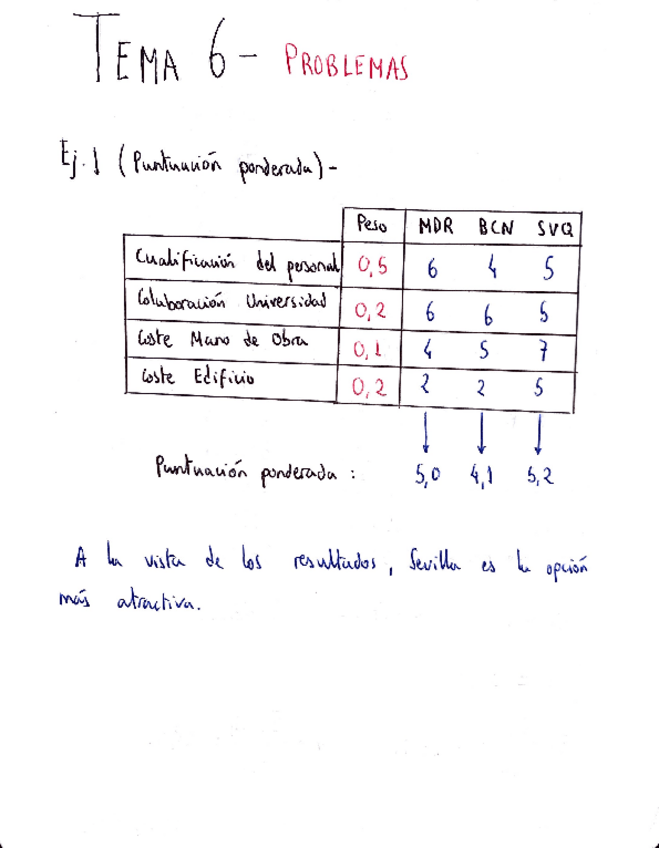 TEMA 6 - PROBLEMAS
Ej. 1 (Puntuación ponderada) -
Peso MDR BCN SVQ
Cualificación del personal 0,5 6 4 5
Colaboración Universidad 0,2 6 6 5
Coste Mano de Obra 0,1 4 5 7
Coste Edificio 0,2 2 2 5
Puntuación ponderada : 5,0 4,1 5,2
A la vista de los resultados, Sevilla es la opción
más atractiva.